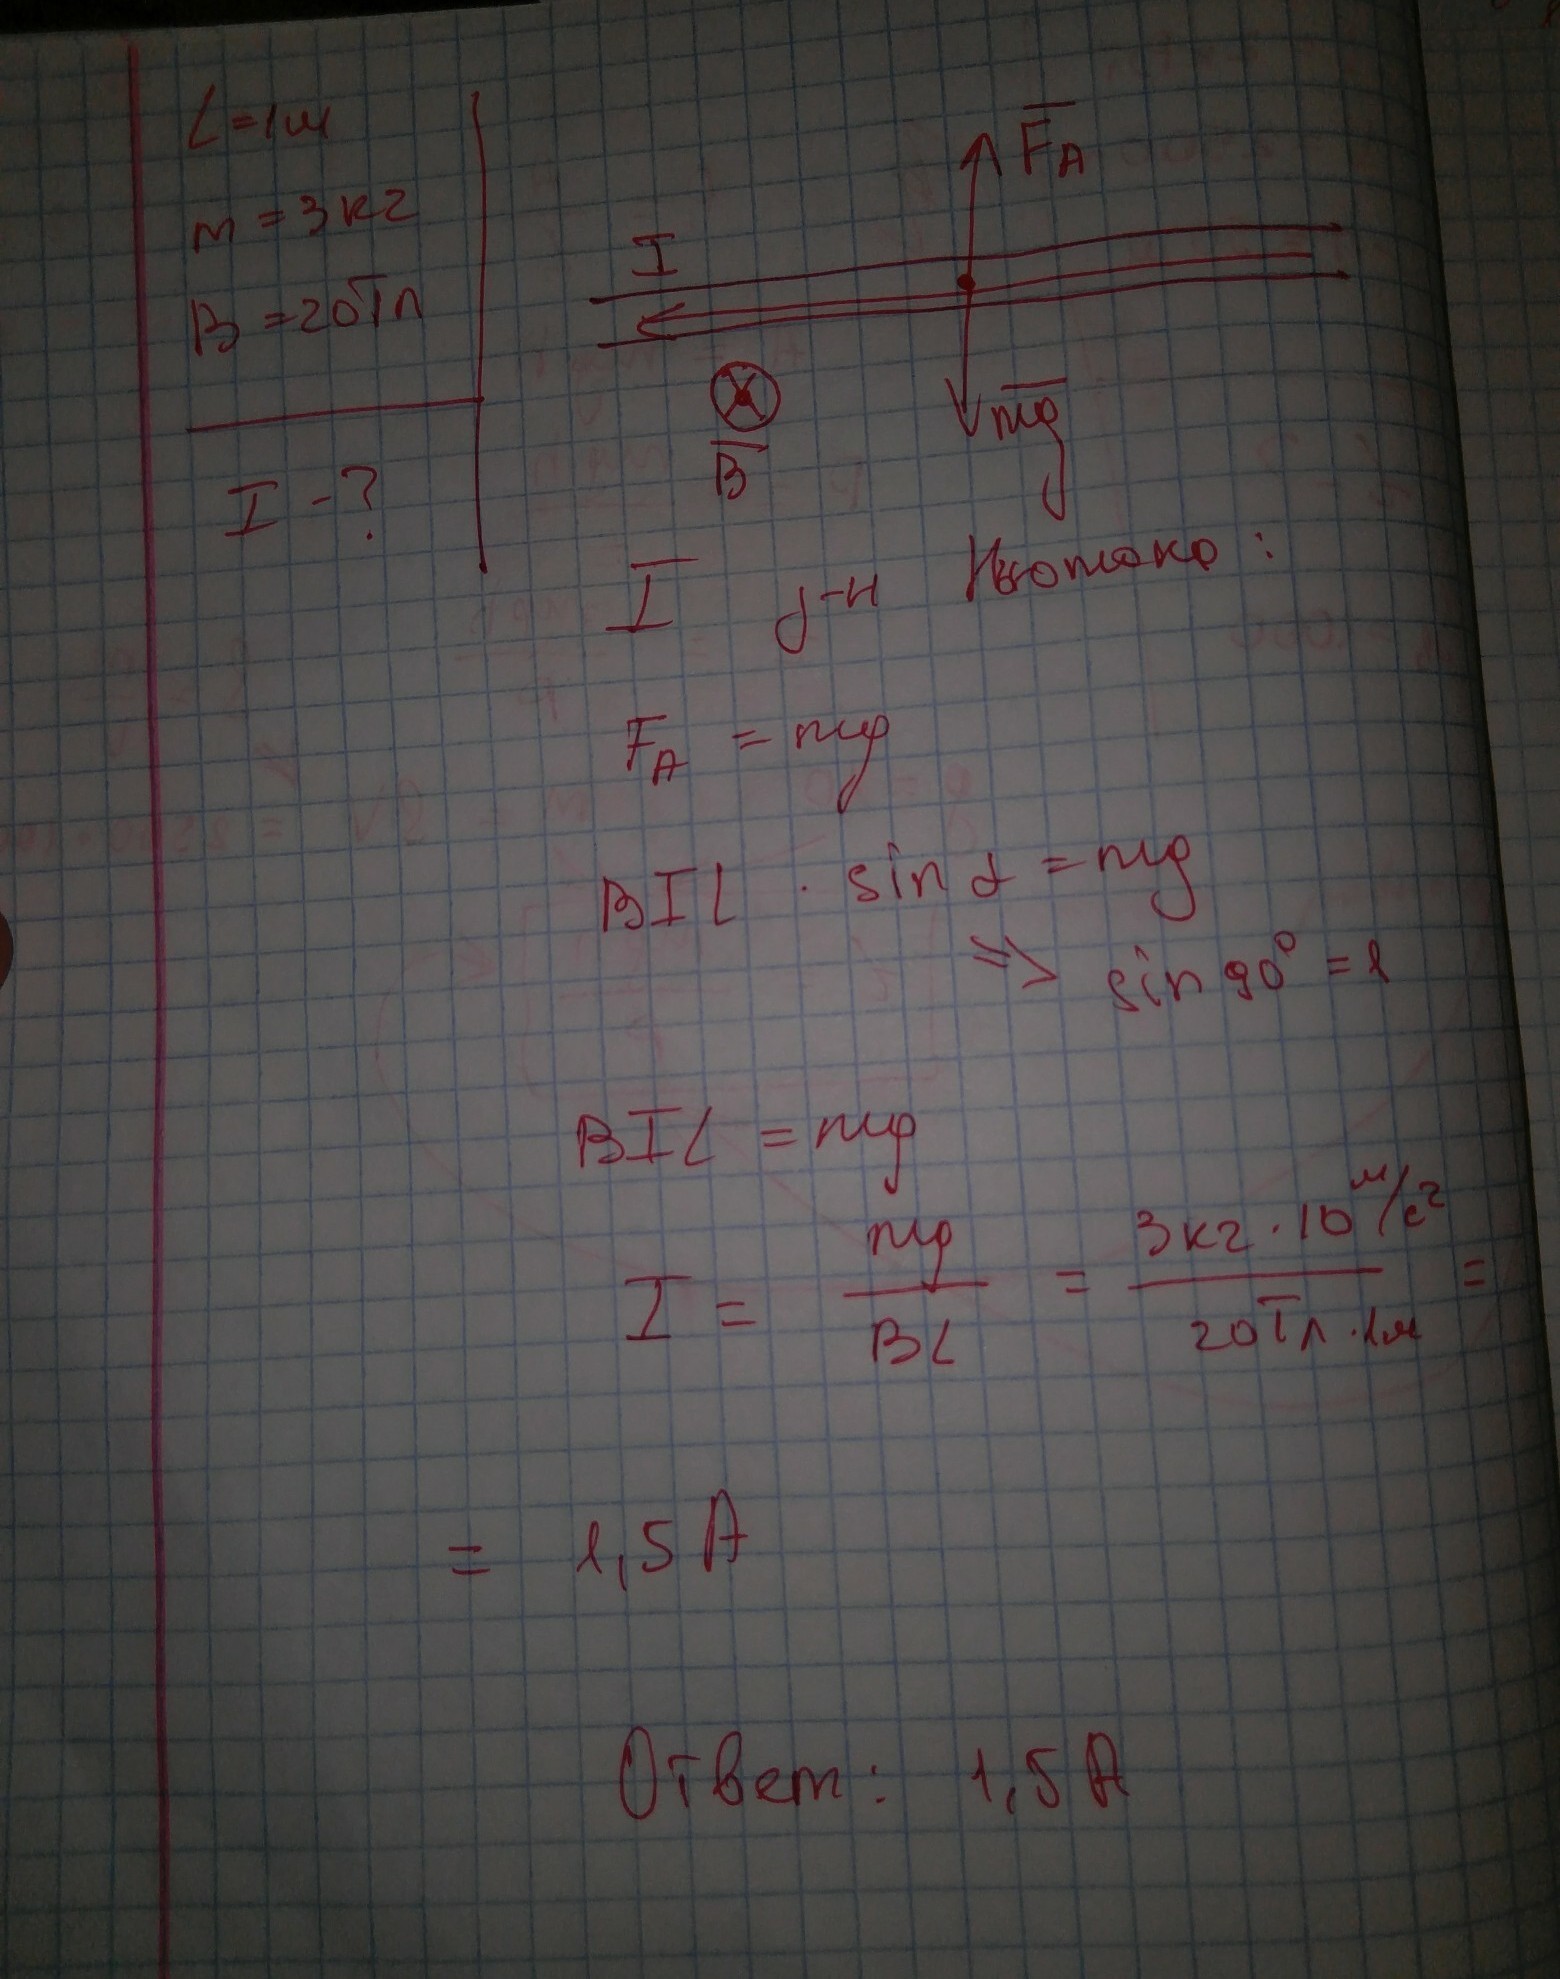 L = 1м
m = 3кг
B = 20Тл
I - ?
F̅A
I
m̅g̅
B̅
I з-н Ньютона:
FA = mg
BIL · sin α = mg
=> sin 90° = 1
BIL = mg
I = mg/BL = 3кг · 10 м/с²/20Тл · 1м =
= 1,5 A
Ответ: 1,5 A